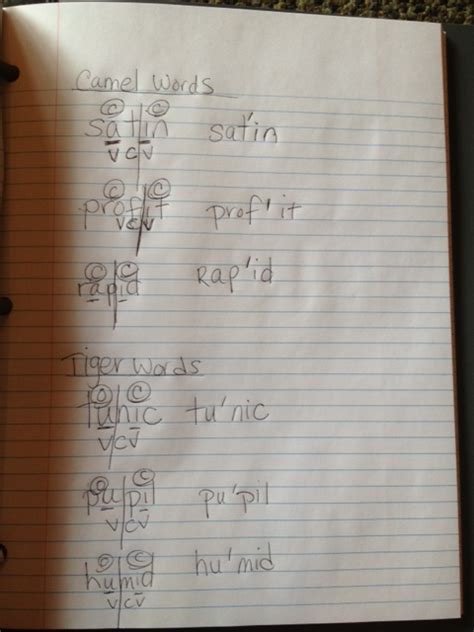 Camel Words
C C
sat|in sat'in
V C V
C C
prof|it prof'it
V C V
C C
rap|id Rap'id
Tiger Words
O C
tu|nic tu'nic
V C V
O C
pu|pil pu'pil
V C V
O C
hu|mid hu'mid
V C V